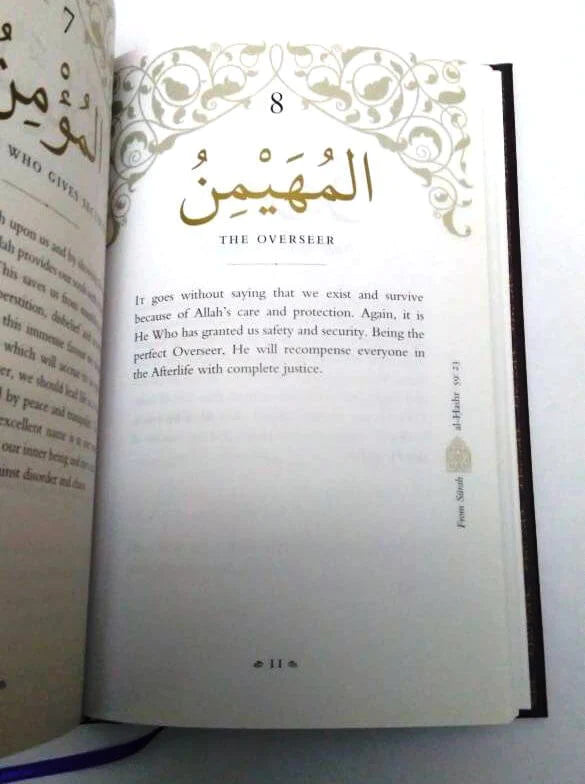 7
المُؤْمِنُ
WHO GIVES
upon us and by
provides our souls
This saves us from
disbelief and
this immense
which will accrue to
we should lead
by peace and
excellent name is
our inner being and
disorder and chaos
8
المُهَيْمِنُ
THE OVERSEER
IT goes without saying that we exist and survive
because of Allah's care and protection. Again, it is
He Who has granted us safety and security. Being the
perfect Overseer, He will recompense everyone in
the Afterlife with complete justice.
From Sūrah al-Hashr 59: 23
11